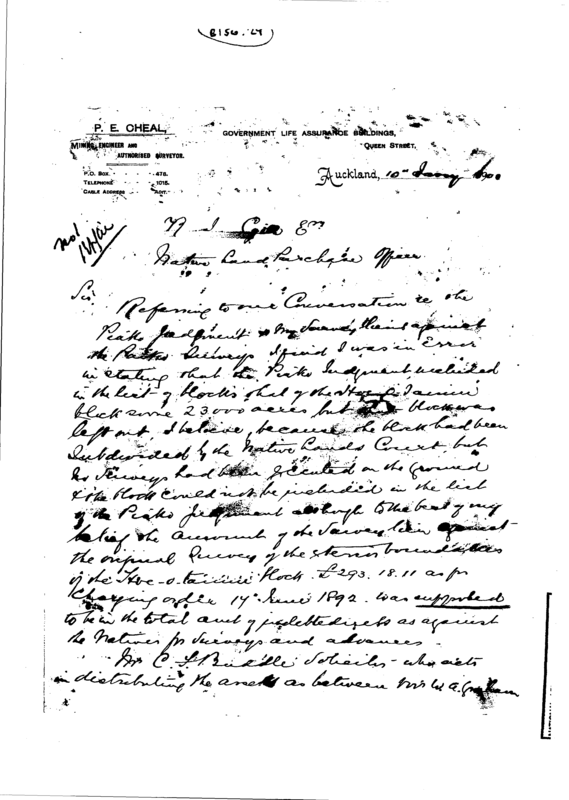 B156.29
P. E. CHEAL,
MINING ENGINEER AND
AUTHORISED SURVEYOR.
P.O. BOX 478.
TELEPHONE 1015.
CABLE ADDRESS
GOVERNMENT LIFE ASSURANCE BUILDINGS,
QUEEN STREET,
Auckland, 10th 190
No 1
Native Land Purchase Officer
Sir
Referring to our Conversation re the
Piako Judgment & my Survey liens against
the Surveys I find I was in Error
in stating that the Piako Judgment included
in the list of blocks that of the Hoe-o-Tainui
block some 23000 acres but block was
left out I believe, because the block had been
Subdivided by the Native Lands Court, but
no Surveys had been Executed on the ground
& the block could not be included in the list
of the Piako Judgment although to the best of my
belief the amount of the Survey lien against
the original Survey of the boundaries
of the Hoe-o-tainui block £293.18.11 as per
Charging order 14 June 1892. was supposed
to be in the total amt of indebtedness as against
the Natives for Surveys and advances.
Mr C. Solicitor who acts
in distributing the assets as between Mr W. A. Graham